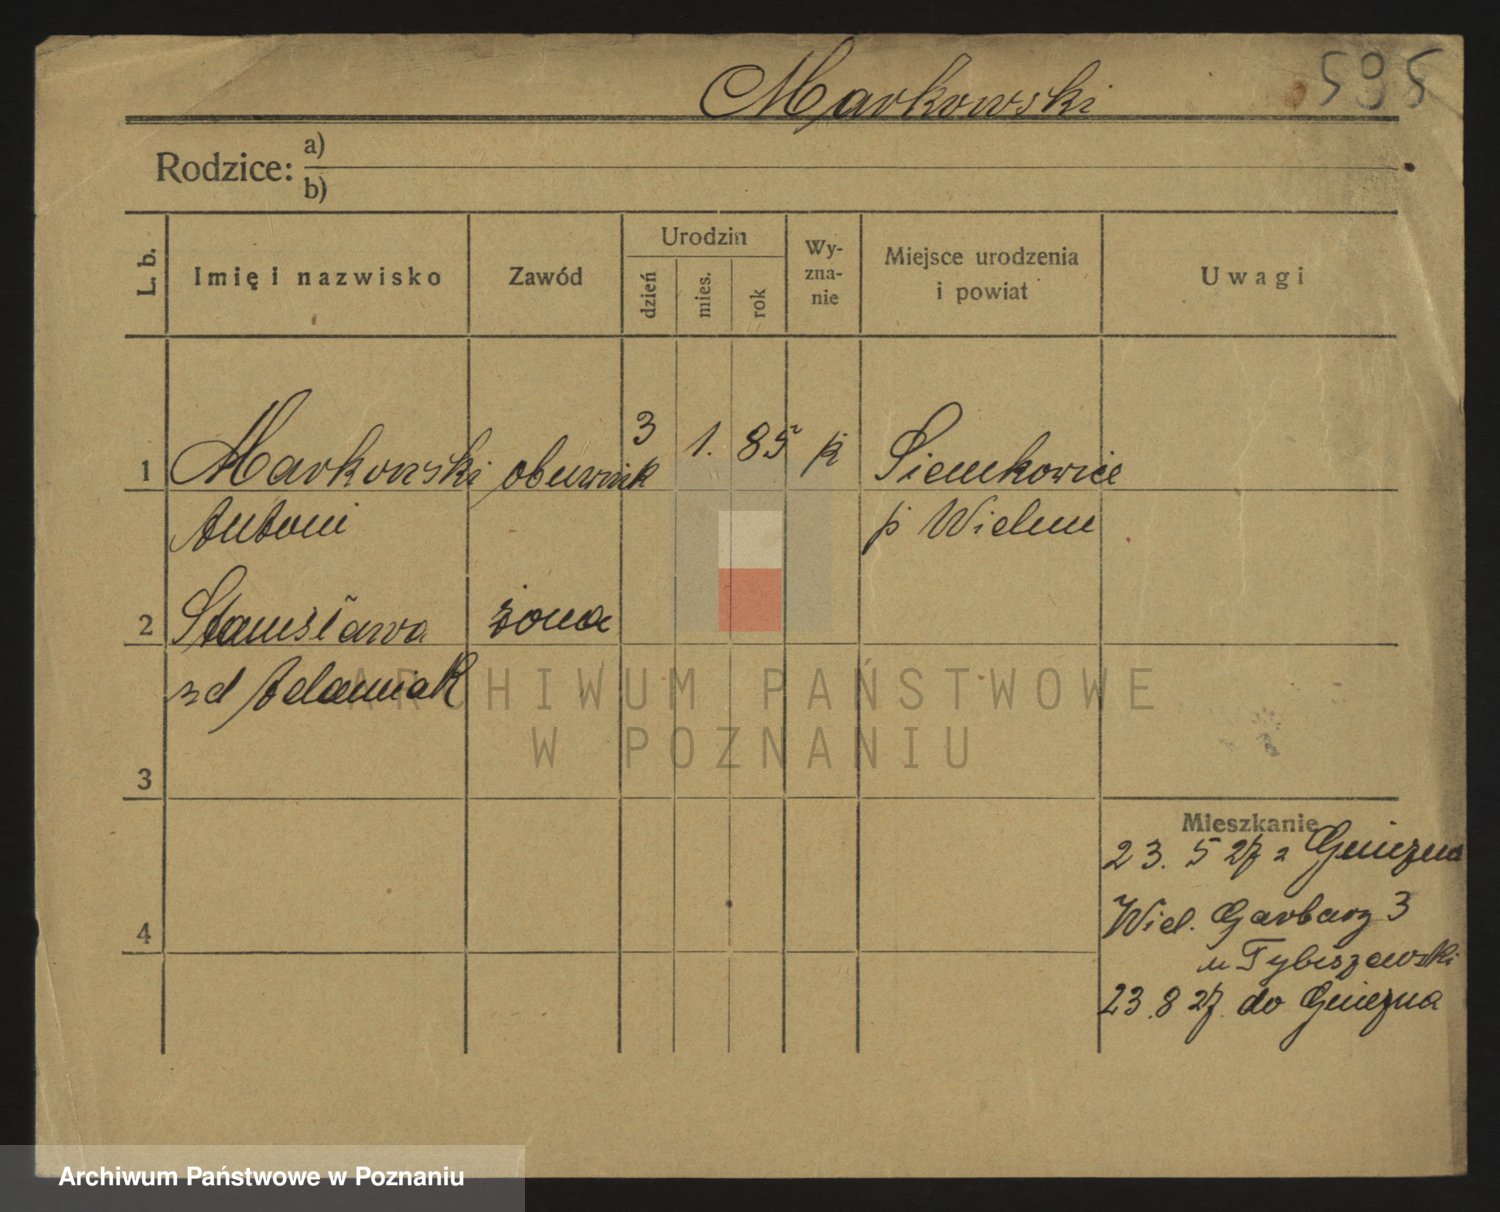 Markowski
595
Rodzice: a)
b)
L. b.
Imię i nazwisko
Zawód
Urodzin
dzień
mies.
rok
Wy-
zna-
nie
Miejsce urodzenia
i powiat
Uwagi
1 Markowski obuwnik 3 1. 85 k Siemkowice
Antoni p Wielun
2 Stanisława żona
zd Adamiak
3
4
Mieszkanie
23. 5 27 z Gniezna
Wiel. Garbary 3
u Tybiszewski
23. 8 27. do Gniezna
ARCHIWUM PAŃSTWOWE
W POZNANIU
Archiwum Państwowe w Poznaniu